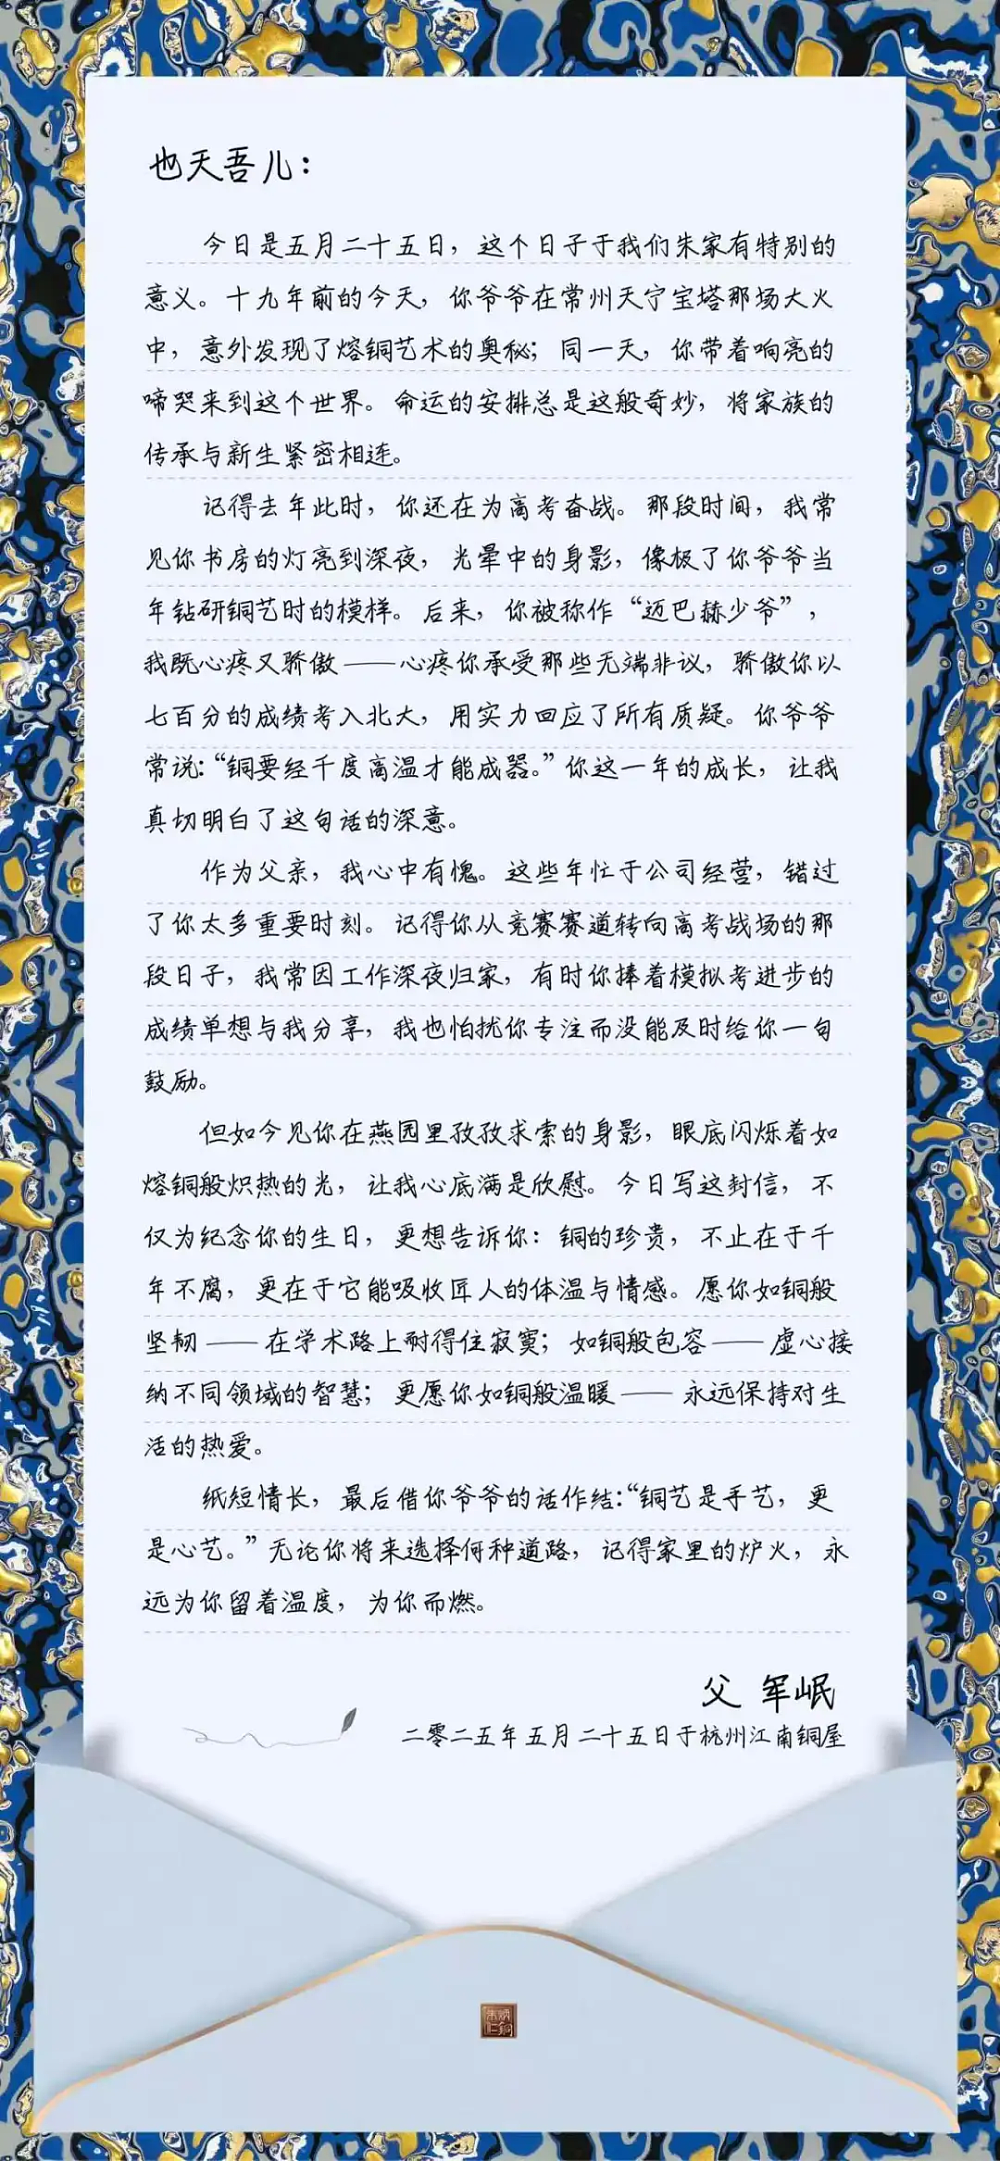 也天吾儿：
今日是五月二十五日，这个日子于我们朱家有特别的
意义。十九年前的今天，你爷爷在常州天宁宝塔那场大火
中，意外发现了熔铜艺术的奥秘；同一天，你带着响亮的
啼哭来到这个世界。命运的安排总是这般奇妙，将家族的
传承与新生紧密相连。
记得去年此时，你还在为高考奋战。那段时间，我常
见你书房的灯亮到深夜，光晕中的身影，像极了你爷爷当
年钻研铜艺时的模样。后来，你被称作“迈巴赫少爷”，
我既心疼又骄傲——心疼你承受那些无端非议，骄傲你以
七百分的成绩考入北大，用实力回应了所有质疑。你爷爷
常说：“铜要经千度高温才能成器。”你这一年的成长，让我
真切明白了这句话的深意。
作为父亲，我心中有愧。这些年忙于公司经营，错过
了你太多重要时刻。记得你从竞赛赛道转向高考战场的那
段日子，我常因工作深夜归家，有时你捧着模拟考进步的
成绩单想与我分享，我也怕扰你专注而没能及时给你一句
鼓励。
但如今见你在燕园里孜孜求索的身影，眼底闪烁着如
熔铜般炽热的光，让我心底满是欣慰。今日写这封信，不
仅为纪念你的生日，更想告诉你：铜的珍贵，不止在于千
年不腐，更在于它能吸收匠人的体温与情感。愿你如铜般
坚韧——在学术路上耐得住寂寞；如铜般包容——虚心接
纳不同领域的智慧；更愿你如铜般温暖——永远保持对生
活的热爱。
纸短情长，最后借你爷爷的话作结：“铜艺是手艺，更
是心艺。”无论你将来选择何种道路，记得家里的炉火，永
远为你留着温度，为你而燃。
父 军岷
二零二五年五月二十五日于杭州江南铜屋